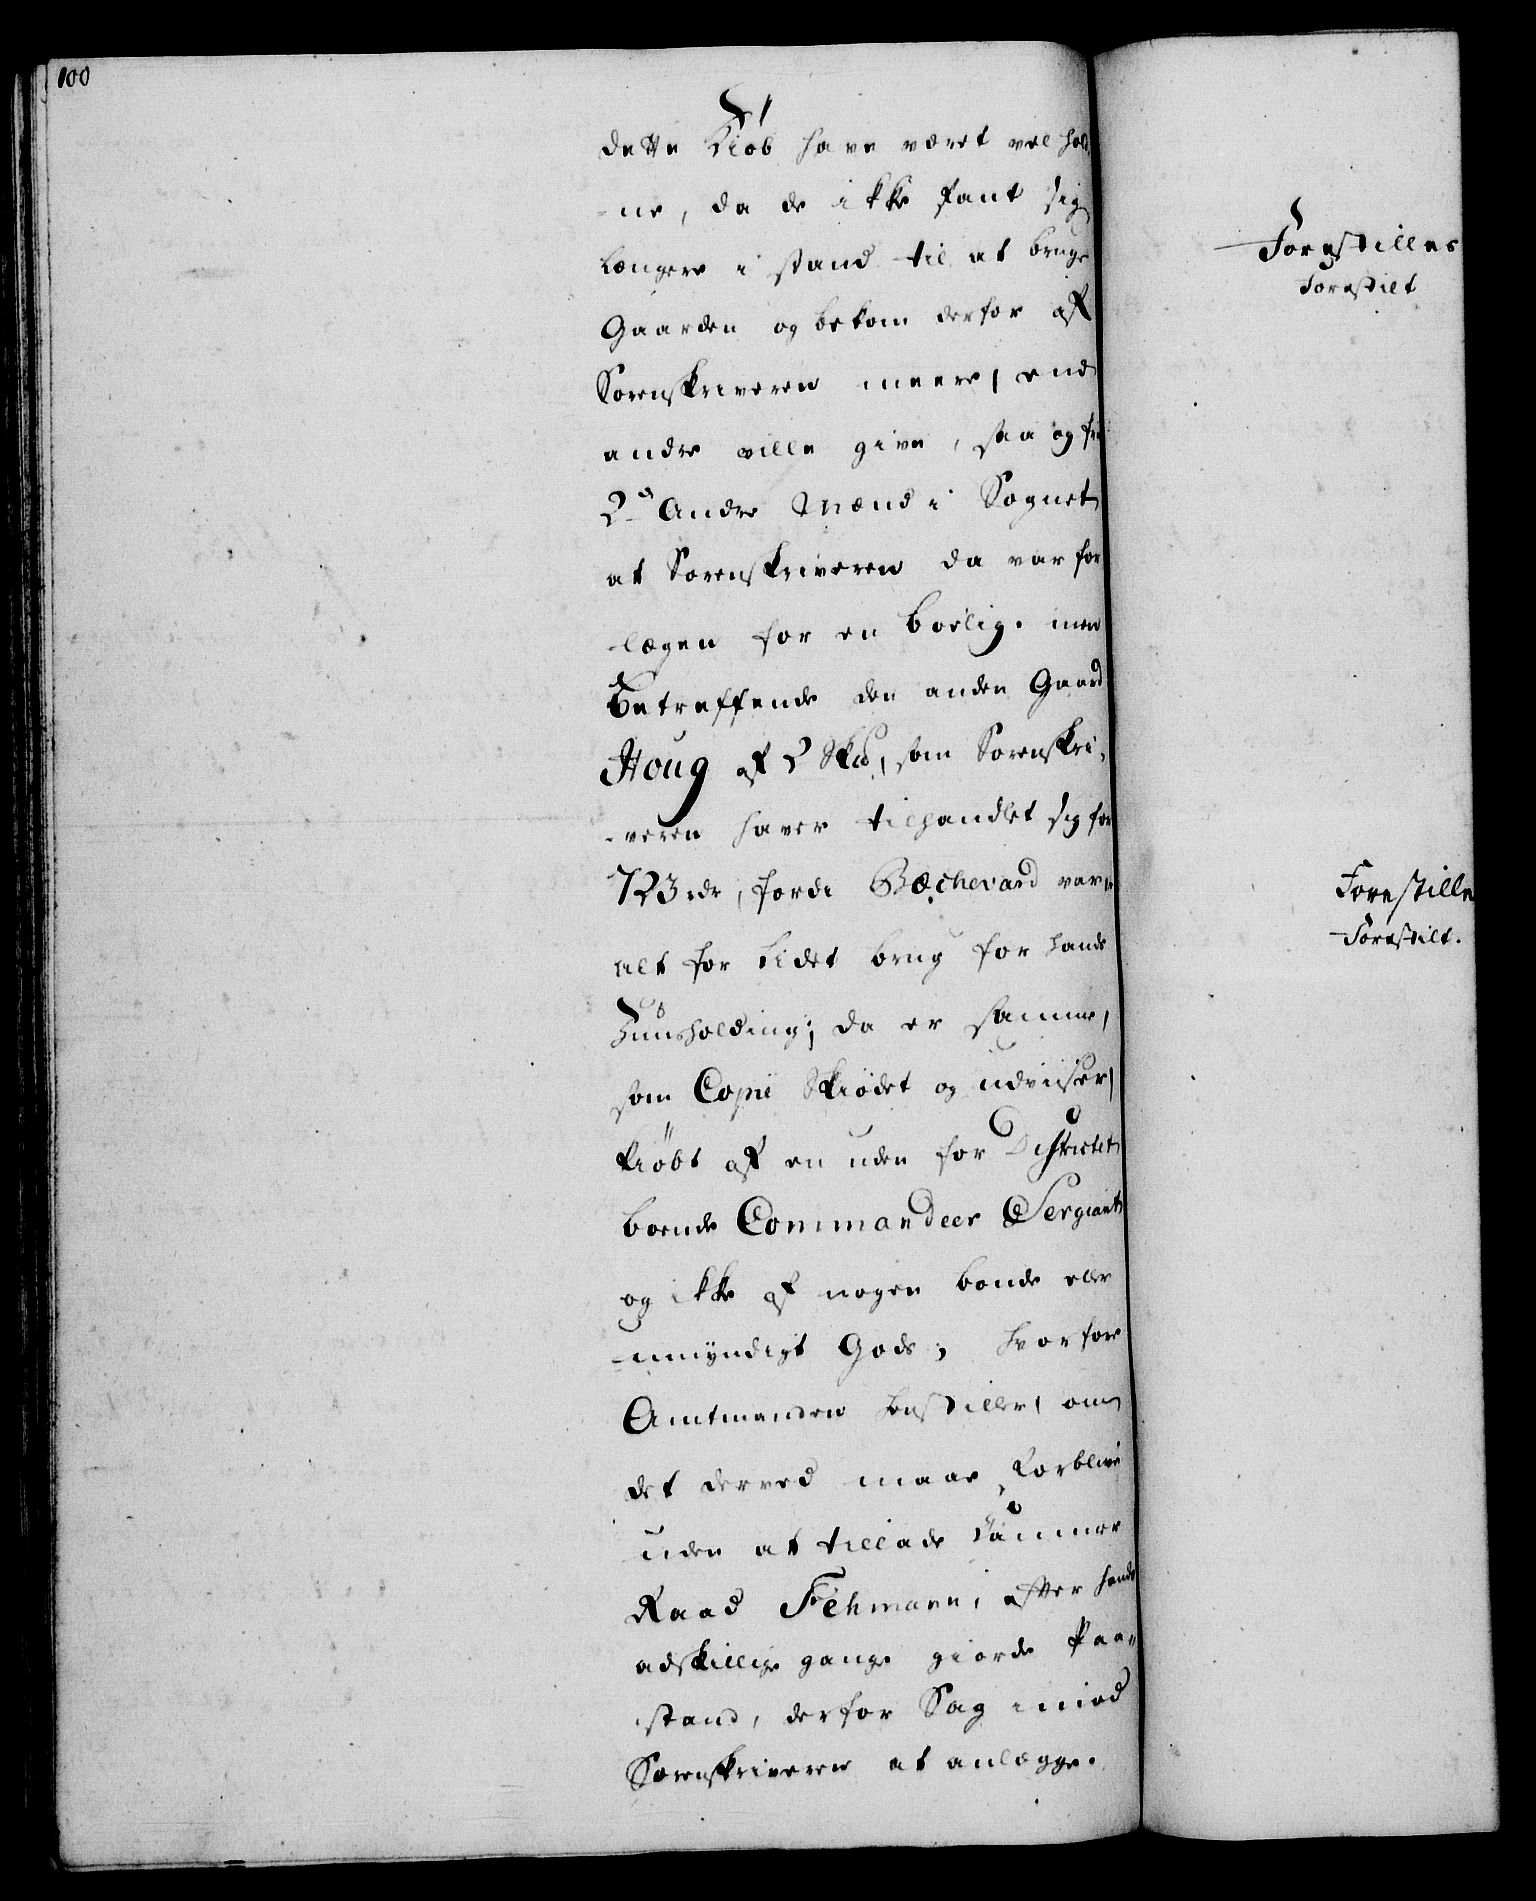 100
dette Kiøb have været vel hold
-ne, da de ikke fant sig
længere i stand til at bruge
Gaarden og bekom derfor af
Sorenskriveren meere, end
andre ville give, saa og fra
2de Andre Mænd i Sognet
at Sorenskriveren da var for
-lægen for en boelig. men
Betreffende den anden Gaard
Houg af 2 Skd, som Sorenskri-
-veren haver tilhandlet sig for
723 rdr, fordi Bæchevard var
alt for lidet brug for hands
Huusholding; da er samme,
som Copie Skiødet og udviser,
kiøbt af en uden for Districtet
boende Commandeer Sergiant
og ikke af nogen bonde eller
umÿndigt Gods; hvorfore
Amtmanden henstiller, om
det derved maae forblive
uden at tillade Cammer
Raad Fehmann, efter hands
adskillige gange giorde Paa-
stand, derfor Sag imod
Sorenskriveren at anlægge.
Forestilles
Forestilt
Forestille
Forestilt.